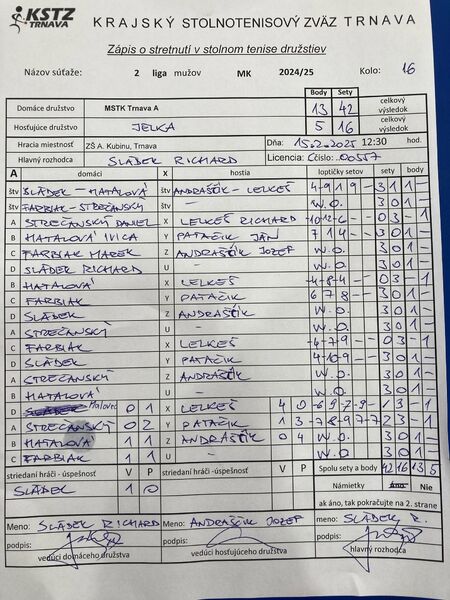 KSTZ TRNAVA KRAJSKÝ STOLNOTENISOVÝ ZVÄZ TRNAVA
Zápis o stretnutí v stolnom tenise družstiev
Názov súťaže: 2 liga mužov MK 2024/25 Kolo: 16
Body Sety
Domáce družstvo MSTK Trnava A 13 42 celkový výsledok
Hosťujúce družstvo JELKA 5 16 celkový výsledok
Hracia miestnosť ZŠ A. Kubinu, Trnava Dňa: 15.2.2025 12:30 hod.
Hlavný rozhodca SLÁDEK RICHARD Licencia: Číslo: 00557
A domáci X hostia loptičky setov sety body
štv SLÁDEK – HATALOVÁ štv ANDRAŠČÍK – LELKEŠ -4 -9 19 - 3 1 1 -
štv FARBIAK – STREČANSKÝ štv W.O. 3 0 1 -
A STREČANSKÝ DANIEL X LELKEŠ RICHARD -10 -12 -6 - - 0 3 - 1
B HATALOVÁ IVICA Y PATAČIK JÁN 7 1 4 - - 3 0 1 -
C FARBIAK MAREK Z ANDRAŠČÍK JOZEF W.O. 3 0 1 -
D SLÁDEK RICHARD U – W.O. 3 0 1 -
B HATALOVÁ X LELKEŠ -4 -8 -4 - - 0 3 - 1
C FARBIAK Y PATAČIK 6 7 8 - - 3 0 1 -
D SLÁDEK Z ANDRAŠČÍK W.O. 3 0 1 -
A STREČANSKÝ U – W.O. 3 0 1 -
C FARBIAK X LELKEŠ -4 -7 -9 - - 0 3 - 1
D SLÁDEK Y PATAČIK 4 10 9 - - 3 0 1 -
A STREČANSKÝ Z ANDRAŠČÍK W.O. 3 0 1 -
B HATALOVÁ U – W.O. 3 0 1 -
D Hatalová 0 1 X LELKEŠ 4 0 -6 9 -7 -9 - 1 3 - 1
A STREČANSKÝ 0 2 Y PATAČIK 1 3 -7 8 -9 7 -7 2 3 - 1
B HATALOVÁ 1 1 Z ANDRAŠČÍK 0 4 W.O. 3 0 1 -
C FARBIAK 1 1 U – W.O. 3 0 1 -
striedaní hráči - úspešnosť V P striedaní hráči - úspešnosť V P Spolu sety a body 42 16 13 5
SLÁDEK 1 0 Námietky Áno Nie
ak áno, tak pokračujte na 2. strane
Meno: SLÁDEK RICHARD Meno: ANDRAŠČÍK JOZEF Meno: SLÁDEK R.
podpis: podpis: podpis:
vedúci domáceho družstva vedúci hosťujúceho družstva hlavný rozhodca